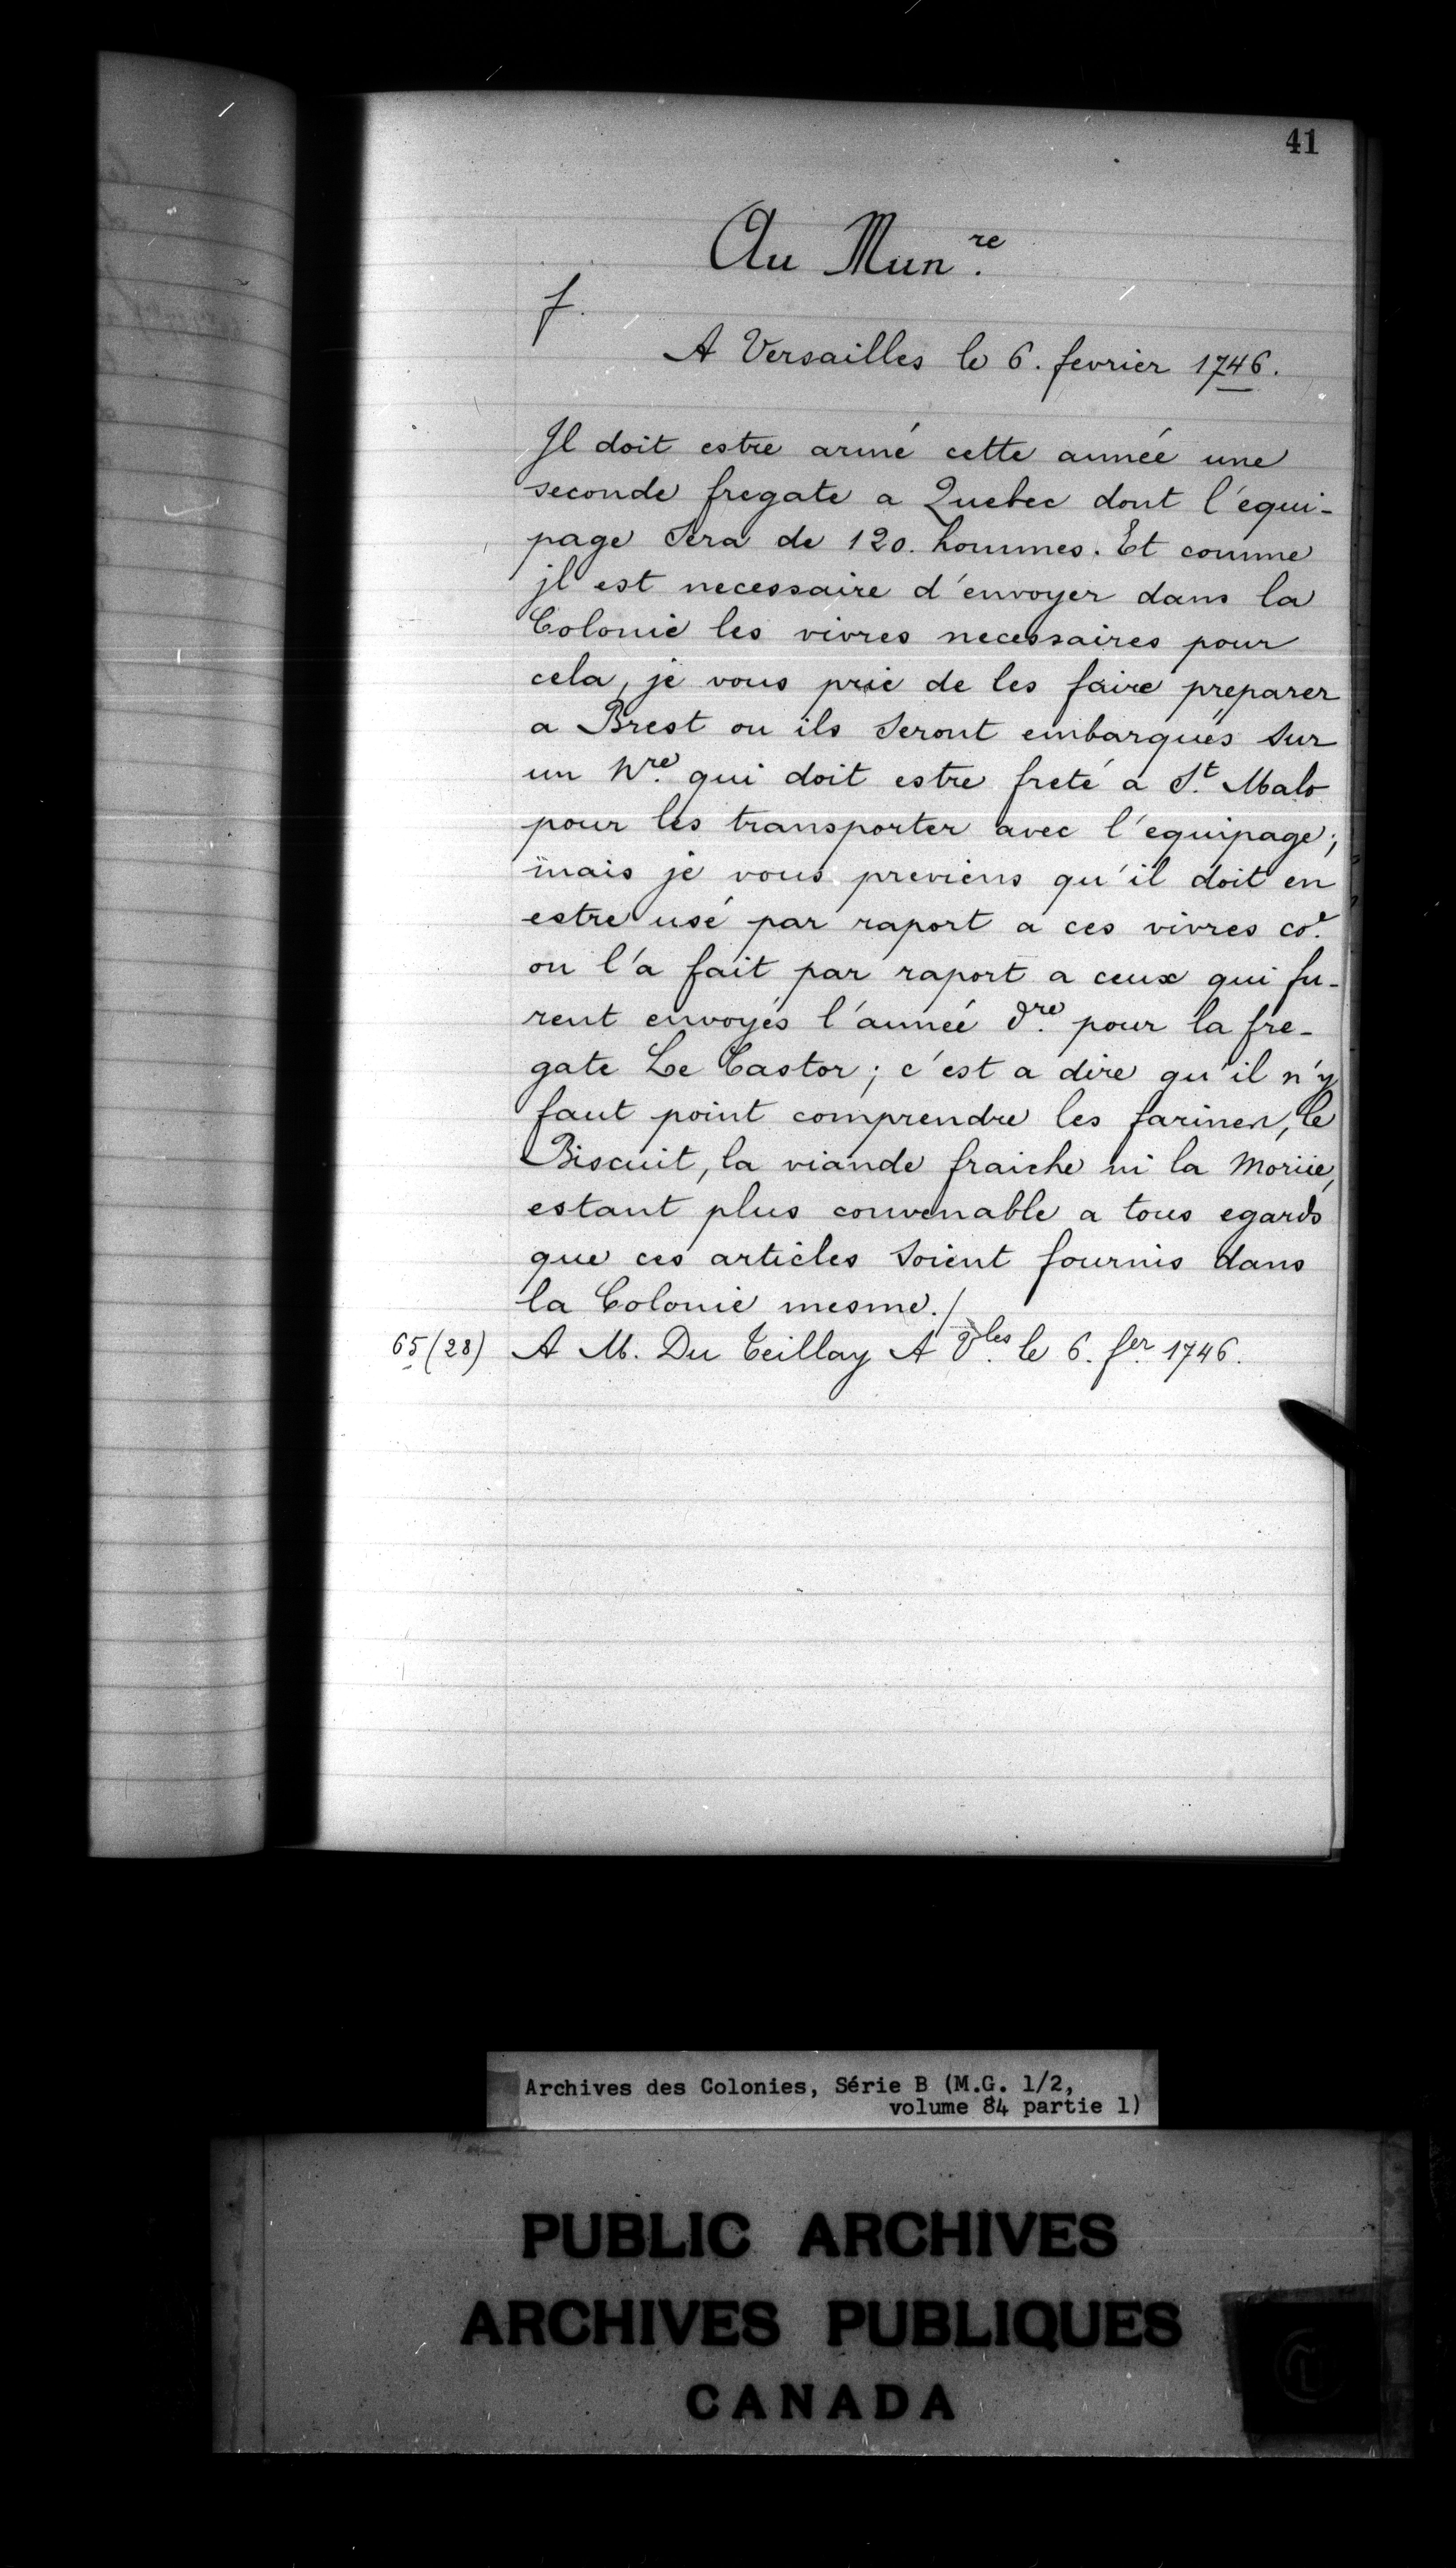 41
Au Mun.re
f.
A Versailles le 6. fevrier 1746.
Il doit estre armé cette année une
seconde fregate a Quebec dont l'equi-
page sera de 120. hommes. Et comme
jl est necessaire d'envoyer dans la
Colonie les vivres necessaires pour
cela, je vous prie de les faire preparer
a Brest ou ils seront embarqués sur
un Nre. qui doit estre freté a St. Malo
pour les transporter avec l'equipage;
mais je vous previens qu'il doit en
estre usé par raport a ces vivres coe.
on l'a fait par raport a ceux qui fu-
rent envoyés l'année dre. pour la fre-
gate Le Castor; c'est a dire qu'il n'y
faut point comprendre les farines, le
Biscuit, la viande fraiche ni la Moriie,
estant plus convenable a tous egards
que ces articles soient fournis dans
la Colonie mesme./
65 (28) A M. Du Teillay A Vles. le 6. fer. 1746.
Archives des Colonies, Série B (M.G. 1/2,
volume 84 partie 1)
PUBLIC ARCHIVES
ARCHIVES PUBLIQUES
CANADA